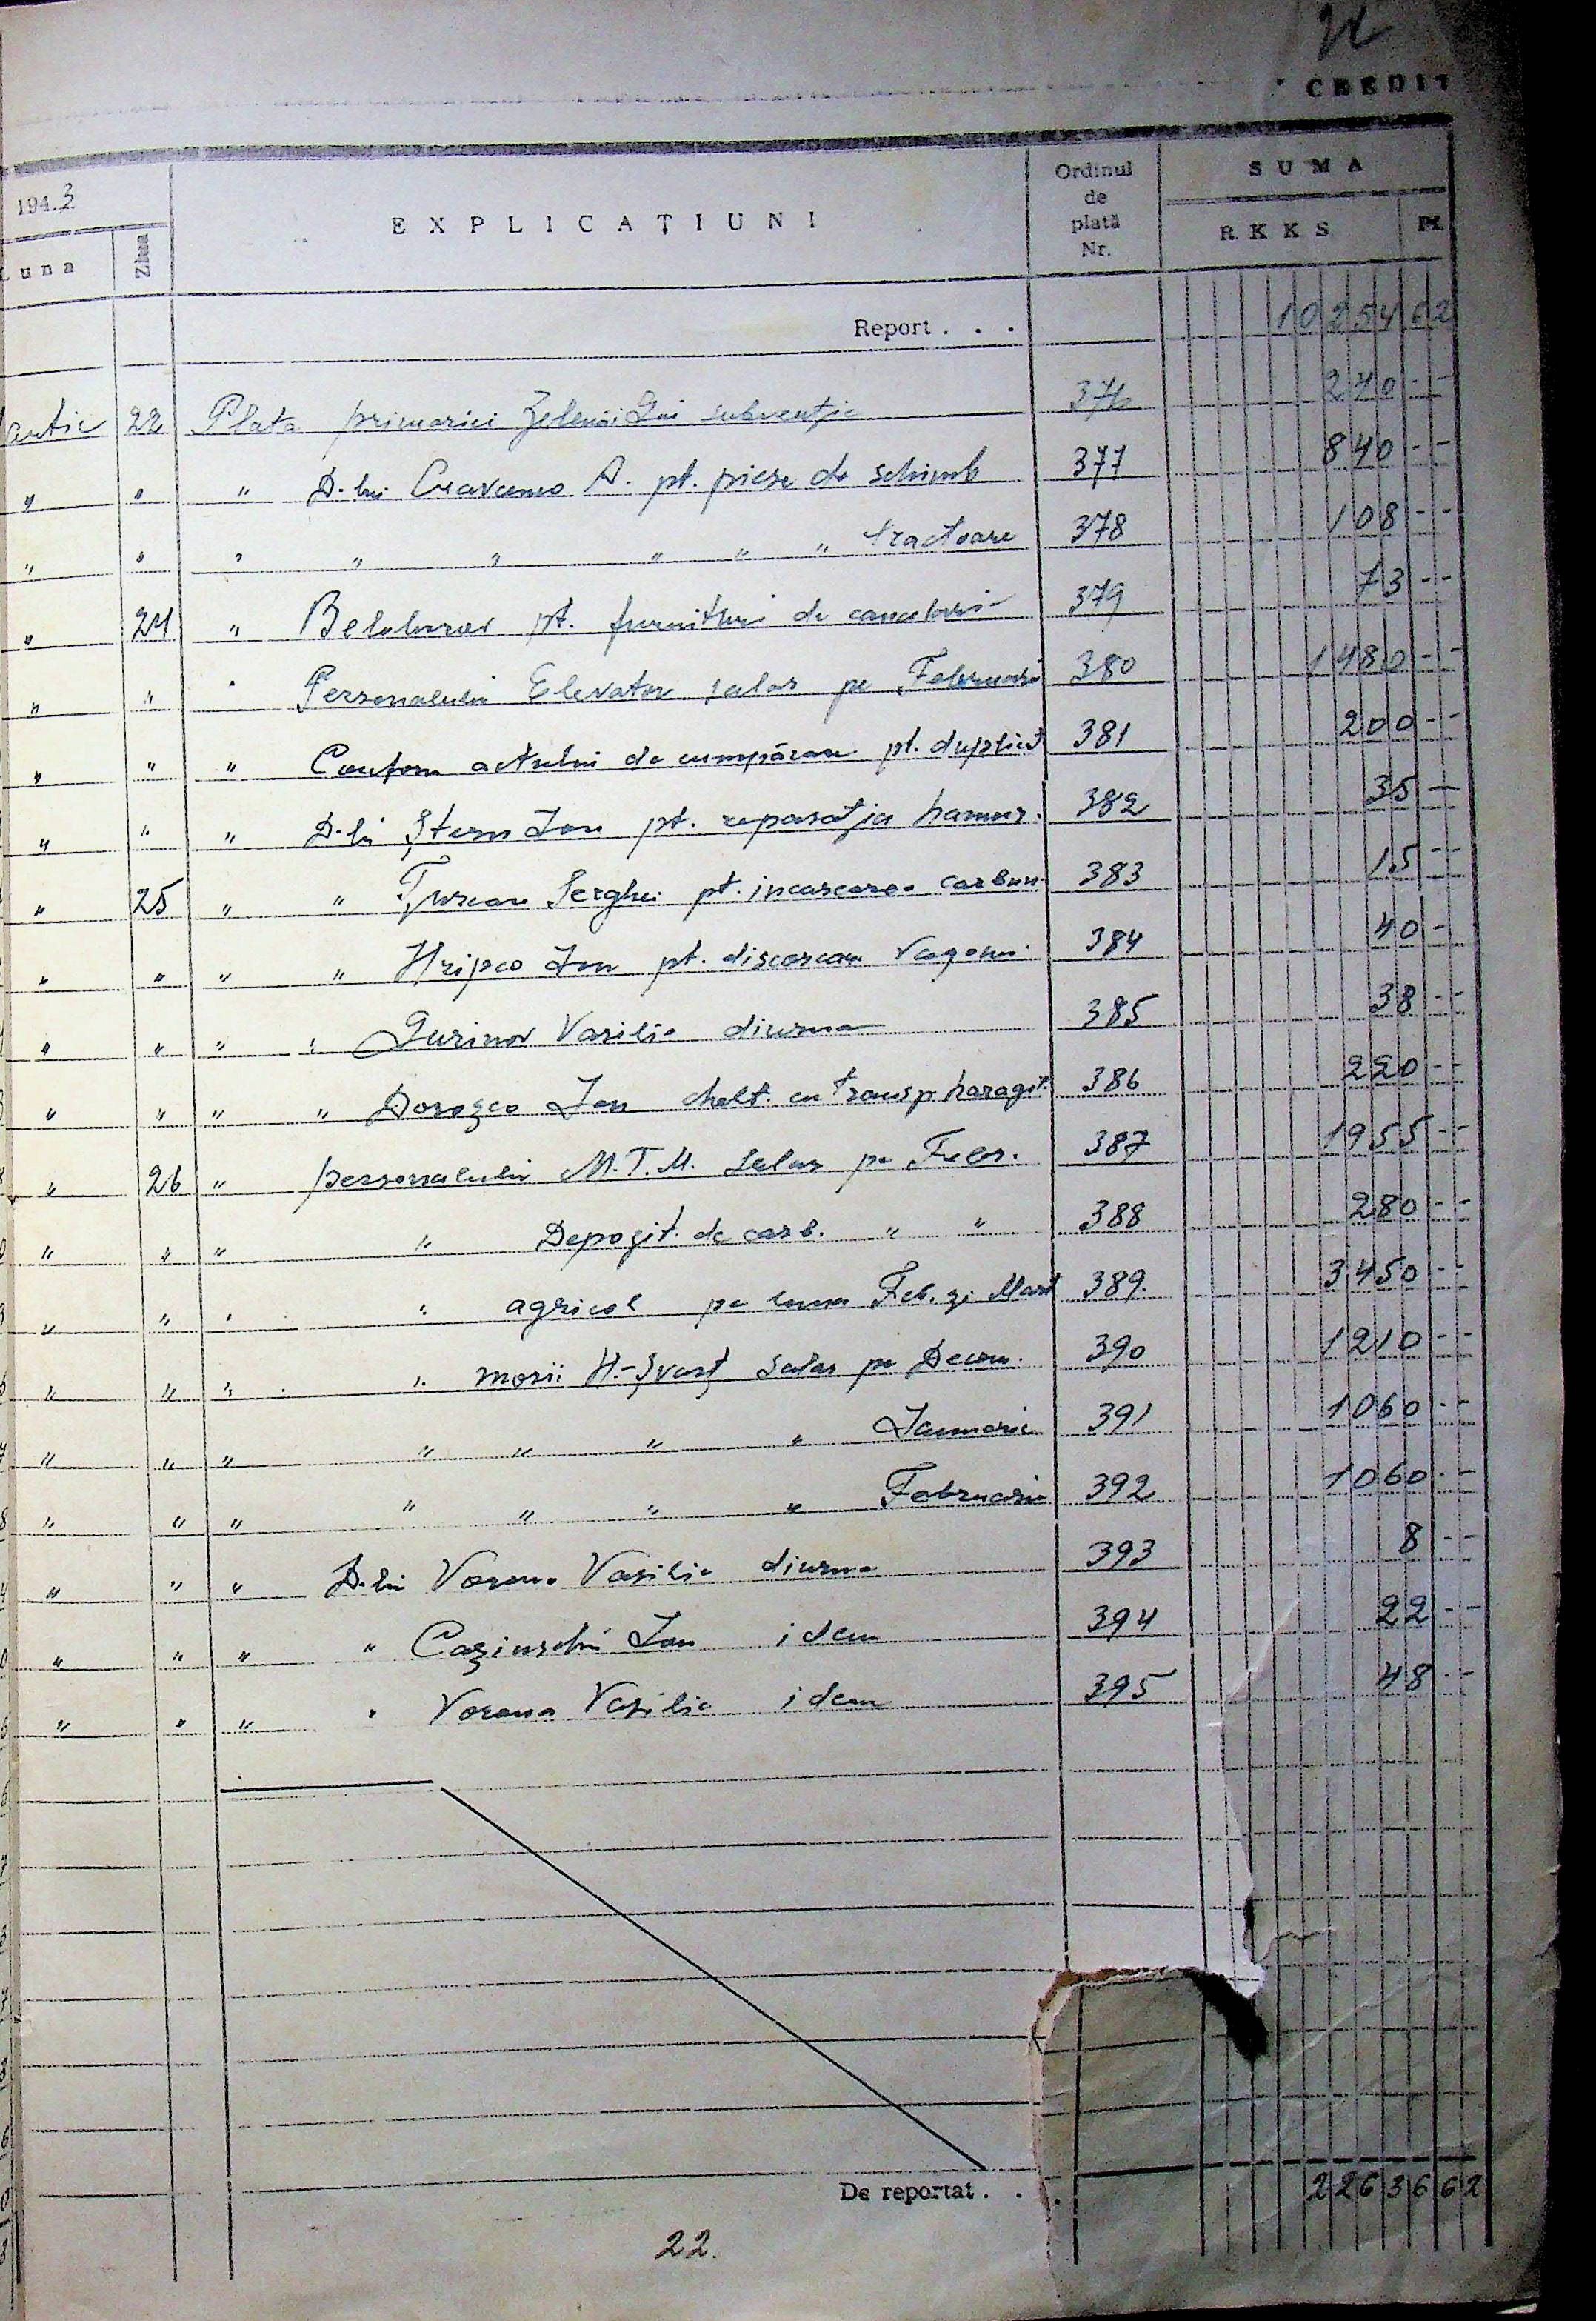 CREDIT
194.3
Luna
Ziua
EXPLICAȚIUNI
Ordinul de plată Nr.
SUMA
R.K.K.S.
Pf.
Report . . . 10254 62
22 Plata primariei subvenție 376 240 --
" " " D-lui A. pt. piese de schimb 377 840 --
" " " " " " " " tractoare 378 108 --
" 24 " pt. furnituri de cancelarie 379 73 --
" " " Personalului Elevator salar pe Februarie 380 1480 --
" " " actului de cumpărare pt. duplicat 381 200 --
" " " D-lui Ștern Ion pt. reparația hamur. 382 35 --
" 25 " " Țurcan Serghei pt. incarcarea carbun. 383 15 --
" " " " Hripco Ion pt. discarcarea vagonu 384 40 -
" " " " Gurinov Vasilie diurna 385 38 --
" " " " Doroșco Ion chelt. cu transp. 386 220 --
" 26 " personalului M.T.M. Salar pe Febr. 387 1955 --
" " " " Depozit. de carb. " " 388 280 --
" " " " agricol pe luna Feb. și Mart 389. 3450 --
" " " " morii H.-Șvarț Salar pe Decem. 390 1210 --
" " " " " " " Ianuarie 391 1060 --
" " " " " " " Februarie 392 1060 --
" " " D-lui Vorona Vasilie diurna 393 8 --
" " " " Ion idem 394 22 --
" " " " Vorona Vasilie idem 395 48 --
De reportat . . . 22636 62
22.